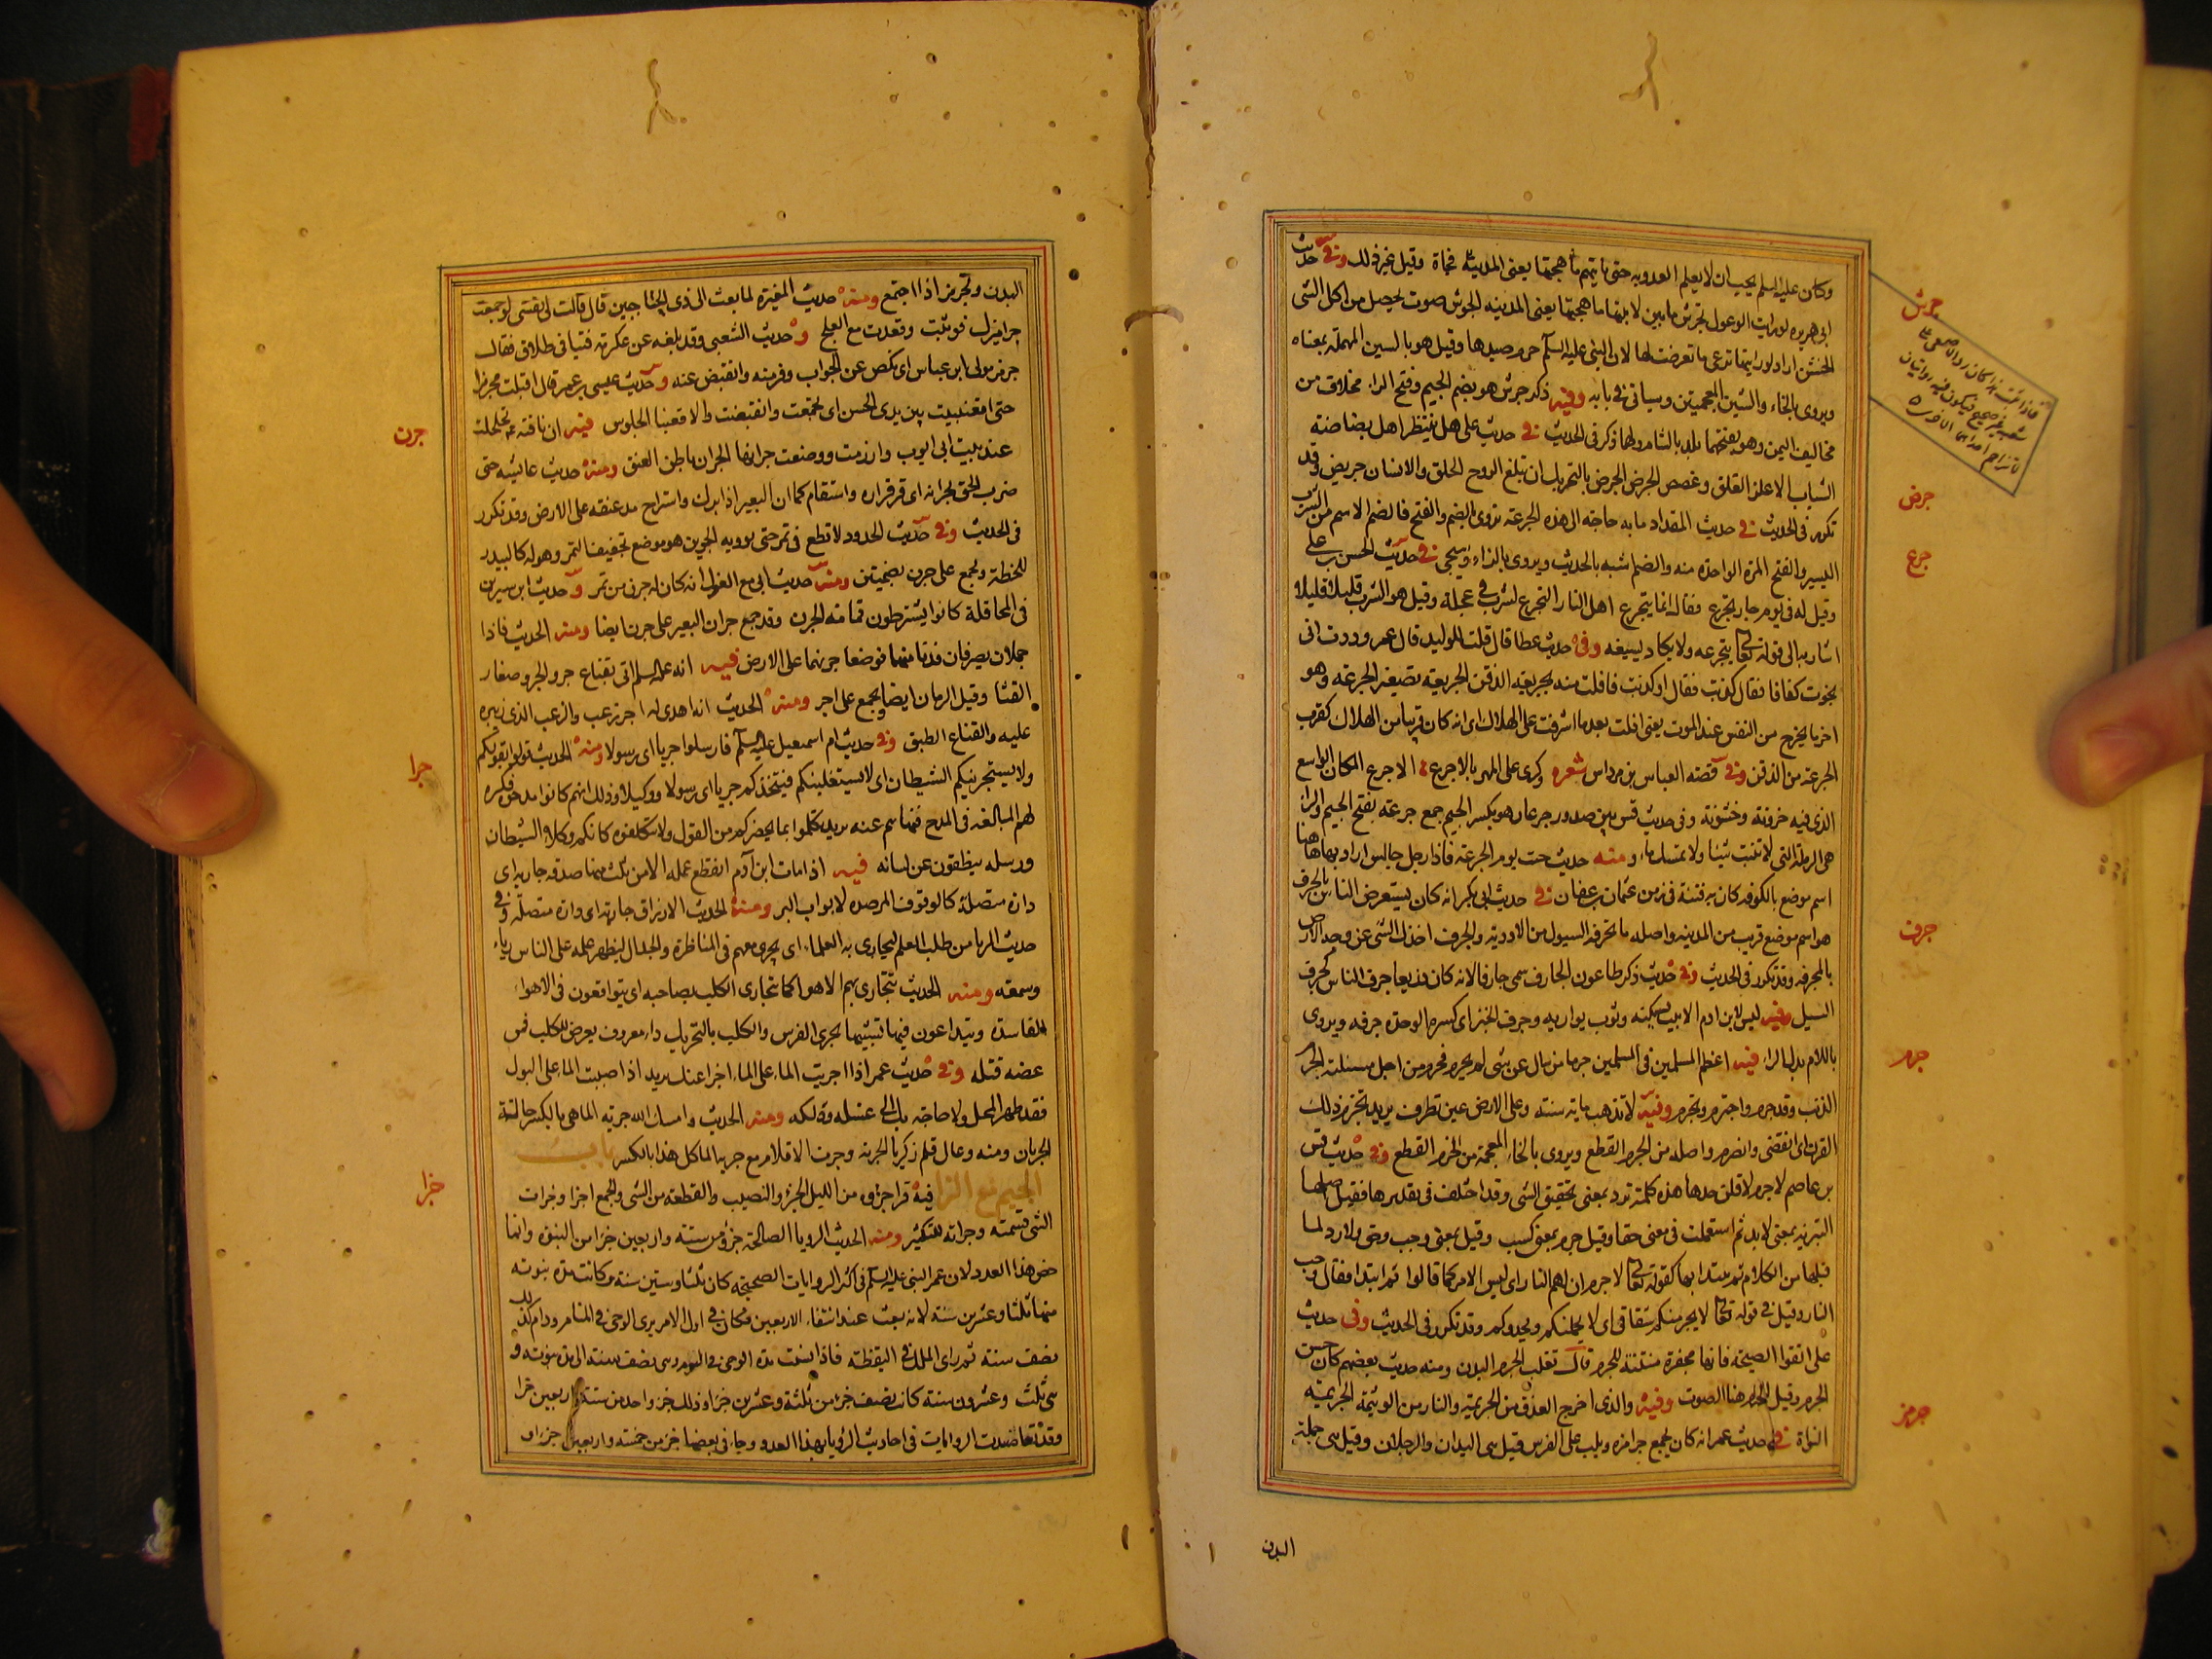 وكان عليه السلم يحب ان لا يعلم العدو به حتى ياتيهم ما هجمتها يعنى المدينة فجاة وقيل غير ذلك وفى حديث
ابى هريره لو رايت الوعول تجرش ما بين لابتيها ما هجتها يعنى المدينه الجرش صوت يحصل من اكل الشى
الخشن اراد لو رايتها ترعى ما تعرضت لها لان النبى عليه السلم حرم صيدها وقيل هو بالسين المهملة بمعناه
ويروى بالخاء والشين المعجميتين وسياتى فى بابه وفيه ذكر جرش هو بضم الجيم وفتح الراء مخلاف من
مخاليف اليمن وهو بفتحهما بلد بالشام ولها ذكر فى الحديث فى حديث على هل ينتظر اهل بضاضة
الشباب الا علز القلق وغصص الجرض الجرض بالتحريك ان تبلغ الروح الحلق والانسان جريض وقد
تكرر فى الحديث فى حديث المقداد ما به حاجة الى هذه الجرعة تروى بالضم والفتح فالضم الاسم من الشرب
اليسير والفتح المرة الواحدة منه والضم اشبه بالحديث ويروى بالزاء وسيجى فى حديث الحسن بن على
وقيل له فى يوم حار تجرع فقال انما يتجرع اهل النار التجرع لشرب فى عجلة وقيل هو الشرب قليلا قليلا
اشار به الى قوله تعالى يتجرعه ولا يكاد يسيغه وفى حديث عطا قال قلت للوليد قال عمر وددت انى
نجوت كفافا فقال كذبت فقال او كذبت فافلت منه بجريعة الذقن الجريعة تصغير الجرعة وهو
اخر ما يخرج من النفس عند الموت يعنى افلت بعد ما اشرفت على الهلاك اى انه كان قريبا من الهلاك كقرب
الجرعة من الذقن وفى قصة العباس بن مرداس شعره وكرى على المهر بالاجرع الاجرع المكان الواسع
الذى فيه حزونة وخشونة وفى حديث قس بين صدور جرعان هو بكسر الجيم جمع جرعة بفتح الجيم والراء
هى الرملة التى لا تنبت شيئا ولا تمسك ماء ومنه حديث جئت يوم الجرعة فاذا رجل جالس اراد بها هاهنا
اسم موضع بالكوفه كان به فتنة فى زمن عثمان بن عفان فى حديث ابى بكر انه كان يستعرض الناس بالجرف
هو اسم موضع قريب من المدينه واصله ما تجرفه السيول من الاودية والجرف اخذك الشى عن وجه الارض
بالمجرفه وقد تكرر فى الحديث وفى حديث ذكر طاعون الجارف سمى جارفا لانه كان ذريعا جرف الناس كجرف
السيل وفيه ليس لابن ادم الا بيت يكنه وثوب يواريه وجرف الخبز اى كسره الواحدة جرفه ويروى
باللام بدل الراء فيه اعظم المسلمين فى المسلمين جرما من سال عن شى لم يحرم فحرم من اجل مسئلته الجرم
الذنب وقد جرم واجترم وتجرم وفيه لا تذهب ماية سنة وعلى الارض عين تطرف يريد تجرم ذلك
القرن اى انقضى وانصرم واصله من الجرم القطع ويروى بالخاء المعجمة من الخرم القطع وفى حديث قيس
بن عاصم لا جرم لاقلن حدها هذه كلمة ترد بمعنى تحقيق الشى وقد اختلف فى تقديرها فقيل اصلها
التبرية بمعنى لا بد ثم استعملت فى معنى حقا وقيل جرم بمعنى كسب وقيل بمعنى وجب وحق ولا رد لما
قبلها من الكلام ثم يبتدا بها كقوله تعالى لا جرم ان لهم النار اى ليس الامر كما قالوا ثم ابتدا فقال وجب
النار وقيل فى قوله تعالى لا يجرمنكم شقاقى اى لا يحملنكم ويحدوكم وقد تكرر فى الحديث وفى حديث
على اتقوا الصبحة فانها مجفرة منتنة للجرم قال ثعلب الجرم البدن ومنه حديث بعضهم كان حسن
الجرم وقيل الجرم هنا الصوت وفيه والذى اخرج العذق من الجريمة والنار من الوثيمة الجريمة
النواة فى حديث عمر انه كان يجمع جراميزه ويثب على الفرس قيل هى اليدان والرجلان وقيل هى جملة
البدن
جرش
جرض
جرع
جرف
جرم
جرمز
البدن وتجرمز اذا اجتمع ومنه حديث المغيرة لما بعث الى ذى الحاجبين قال قالت لى نفسى لو جمعت
جراميزك فوثبت وقعدت مع العلج وحديث الشعبى وقد بلغه عن عكرمة فتيا فى طلاق فقال
جرمز مولى ابن عباس اى نكص عن الجواب وفر منه وانقبض عنه وحديث عيسى بن عمر قال اقبلت مجرمزا
حتى اقعنبيت بين يدى الحسن اى تجمعت وانقبضت والاقعنباء الجلوس فيه ان ناقته تحلحلت
عند بيت ابى ايوب وارزمت ووضعت جرانها الجران باطن العنق ومنه حديث عايشه حتى
ضرب الحق بجرانه اى قر قراره واستقام كما ان البعير اذا برك واستراح مد عنقه على الارض وقد تكرر
فى الحديث وفى حديث الحدود لا قطع فى ثمر حتى يوويه الجرين هو موضع تجفيف التمر وهو له كالبيدر
للحنطة ويجمع على جرن بضمتين ومنه حديث ابى مع الغول انه كان له جرن من تمر وحديث ابن سيرين
فى المحاقلة كانوا يشترطون قمامة الجرن وقد جمع جران البعير على جرن ايضا ومنه الحديث فاذا
جملان يصرفان فدنا منهما فوضعا جرنهما على الارض فيه انه عليه السلم اتى بقناع جرو الجرو صغار
القثا وقيل الرمان ايضا ويجمع على اجر ومنه الحديث انه اهدى له اجر زغب والزغب الذى زيبره
عليه والقناع الطبق وفى حديث ام اسمعيل عليه السلم فارسلوا جريا اى رسولا ومنه الحديث قولوا بقولكم
ولا يستجرينكم الشيطان اى لا يستغلبنكم فيتخذكم جريا اى رسولا ووكيلا وذلك انهم كانوا مدحوه فكره
لهم المبالغه فى المدح فنهاهم عنه يريد تكلموا بما يحضركم من القول ولا تتكلفوه كانكم وكلاء الشيطان
ورسله ينطقون عن لسانه فيه اذا مات ابن آدم انقطع عمله الا من ثلث منها صدقه جاريه اى
دارة متصلة كالوقوف المرصدة لابواب البر ومنه الحديث الارزاق جاريه اى دارة متصلة وفى
حديث الريا من طلب العلم ليجارى به العلماء اى يجرى معهم فى المناظرة والجدال ليظهر علمه على الناس رياء
وسمعه ومنه الحديث تتجارى بهم الاهوا كما يتجارى الكلب بصاحبه اى يتواقعون فى الاهواء
الفاسدة ويتداعون فيها تشبيها بجرى الفرس والكلب بالتحريك داء معروف يعرض للكلب فمن
عضه قتله وفى حديث عمر اذا اجريت الماء على الماء اجزا عنك يريد اذا صببت الماء على البول
فقد طهر المحل ولا حاجة بك الى غسله ودلكه ومنه الحديث وامسك الله جرية الما هى بالكسر حالة
الجريان ومنه وعال قلم زكريا الجرية وجرت الاقلام مع جرية الما كل هذا بالكسر باب
الجيم مع الزا فيه قرا جزؤه من الليل الجزؤ والنصيب والقطعة من الشى والجمع اجزا وجزات
الشى قسمته وجزاته للتكثير ومنه الحديث الرويا الصالحة جزؤ من ستة واربعين جزا من النبوة وانما
خص هذا العدد لان عمر النبى عليه السلم فى اكثر الروايات الصحيحة كان ثلثا وستين سنة وكانت مدة نبوته
منها ثلثا وعشرين سنة لانه بعث عند استيفاء الاربعين فكان فى اول الامر يرى الوحى فى المنام ودام كذلك
نصف سنة ثم راى الملك فى اليقظة فاذا نسبت مدة الوحى فى النوم وهى نصف سنة الى مدة نبوته و
هى ثلث وعشرون سنة كانت نصف جزء من ثلثة وعشرين جزاء وذلك جزء واحد من ستة واربعين جزا
وقد تعاضدت الروايات فى احاديث الرؤيا بهذا العدد وجاء فى بعضها جزء من خمسة واربعين جزاء و
جرن
جرا
جزا